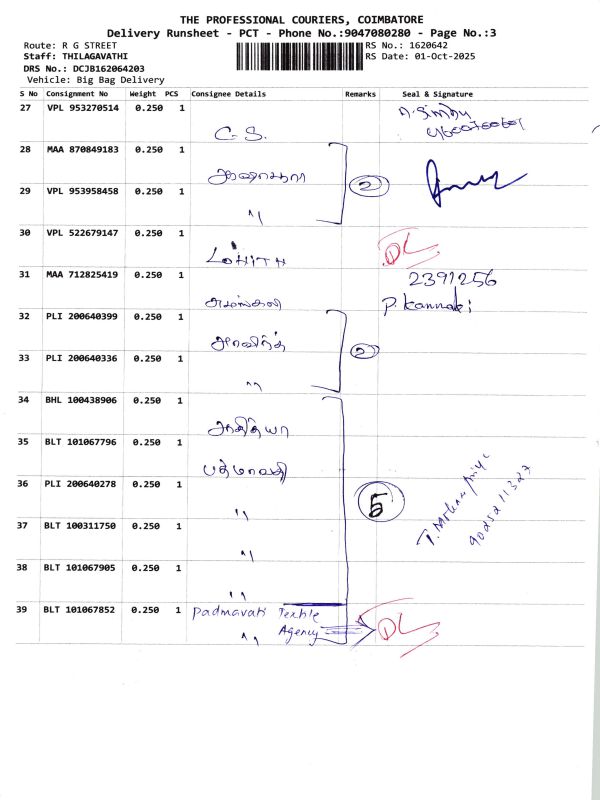 THE PROFESSIONAL COURIERS, COIMBATORE
Delivery Runsheet - PCT - Phone No.:9047080280 - Page No.:3
Route: R G STREET
RS No.: 1620642
Staff: THILAGAVATHI
RS Date: 01-Oct-2025
DRS No.: DCJB162064203
Vehicle: Big Bag Delivery
S No Consignment No Weight PCS Consignee Details Remarks Seal & Signature
27 VPL 953270514 0.250 1
C-S.
28 MAA 870849183 0.250 1
2
29 VPL 953958458 0.250 1
"
30 VPL 522679147 0.250 1 DL
LOHITH
31 MAA 712825419 0.250 1 2391256
P. Kannaki
32 PLI 200640399 0.250 1
அரவிந்த்
33 PLI 200640336 0.250 1 2
"
34 BHL 100438906 0.250 1
ஆதித்யா
35 BLT 101067796 0.250 1
பத்மாவதி
36 PLI 200640278 0.250 1 5
"
37 BLT 100311750 0.250 1
"
38 BLT 101067905 0.250 1
"
39 BLT 101067852 0.250 1 Padmavati Textile
Agency DL
"